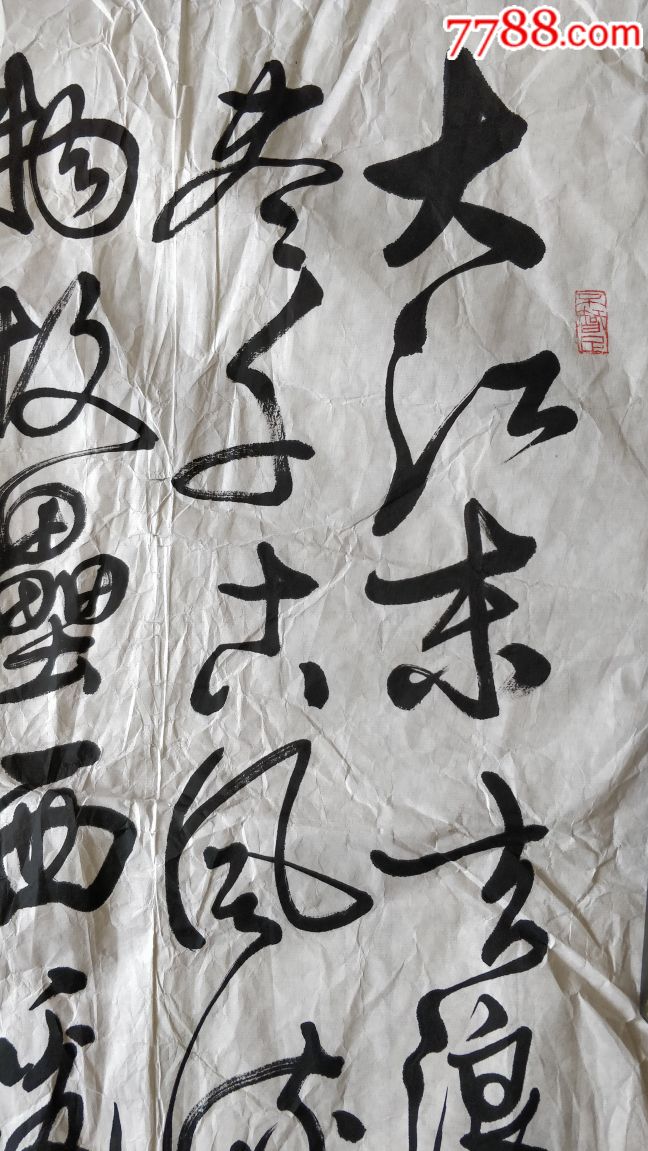 7788.com
大江东去浪
尽千古风流
物故壘西